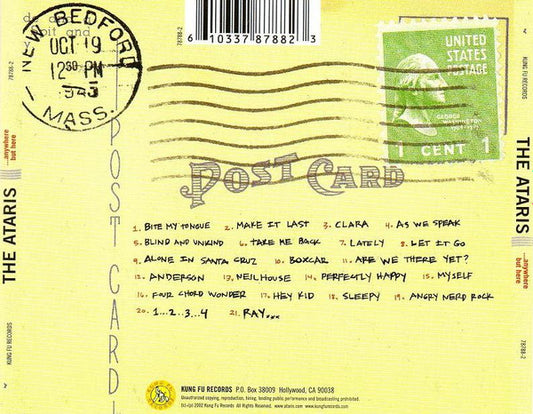 de a
bit and
y
NEW BEDFORD
OCT 19
12 30 PM
MASS.
6 10337 87882 3
78788-2
UNITED
STATES
POSTAGE
GEORGE
WASHINGTON
1 CENT 1
POST CARD
POST CARD
1. BITE MY TONGUE 2. MAKE IT LAST 3. CLARA 4. AS WE SPEAK
5. BLIND AND UNKIND 6. TAKE ME BACK 7. LATELY 8. LET IT GO
9. ALONE IN SANTA CRUZ 10. BOXCAR 11. ARE WE THERE YET?
12. ANDERSON 13. NEILHOUSE 14. PERFECTLY HAPPY 15. MYSELF
16. FOUR CHORD WONDER 17. HEY KID 18. SLEEPY 19. ANGRY NERD ROCK
20. 1...2...3...4 21. RAY...
KUNG FU RECORDS P.O. Box 38009 Hollywood, CA 90038
Unauthorized copying, reproduction, hiring, lending public performance and broadcasting prohibited.
(c)+(p) 2002 Kung Fu Records All Rights Reserved. www.ataris.com www.kungfurecords.com
78788-2
...anywhere
but here
THE ATARIS
KUNG FU RECORDS
KUNG FU RECORDS
THE ATARIS
...anywhere
but here
78788-2